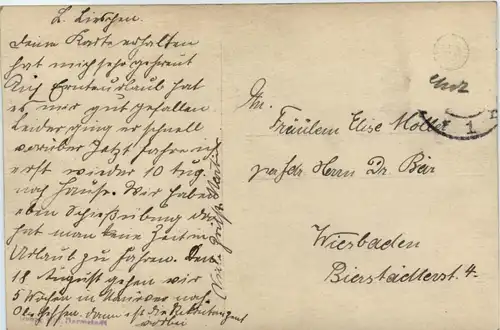 L. Lieschen.
Deine Karte erhalten
hat mich sehr gefreut
Auf Ernteurlaub hat
es mir gut gefallen.
Leider ging er schnell
vorüber Jetzt fahren
erst wieder 10 Aug.
nach Hause. Wir haben
eben Schießübung da
hat man keine Zeit in
Urlaub zu fahren. Den
18 August gehen wir
5 Wochen in Manöver nach
Oberhessen. dann ist die
vorbei
Viele Grüße
An.
Fräulein Elise Moll
per Adr. Herrn Dr. Bär
Wiesbaden
Bierstädterst. 4.
1
Darmstadt